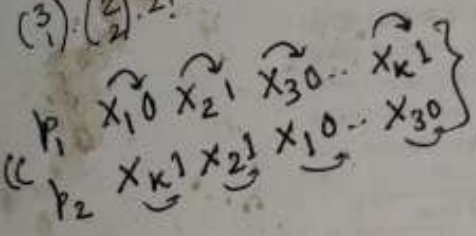 (3 1) . (2 2) . 2!
p₁ X₁0 X₂1 X₃0 .. Xₖ1 }
(( p₂ Xₖ1 X₂1 X₁0 .. X₃0